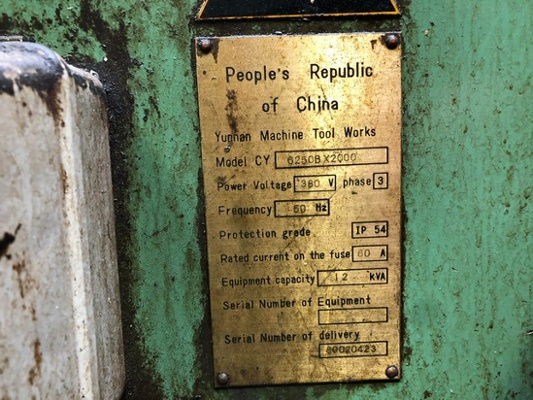 People's Republic
of China
Yunnan Machine Tool Works
Model CY 6250BX2000
Power Voltage 380 V phase 3
Frequency 50 Hz
Protection grade IP 54
Rated current on the fuse 60 A
Equipment capacity 12 kVA
Serial Number of Equipment
Serial Number of delivery
89020423